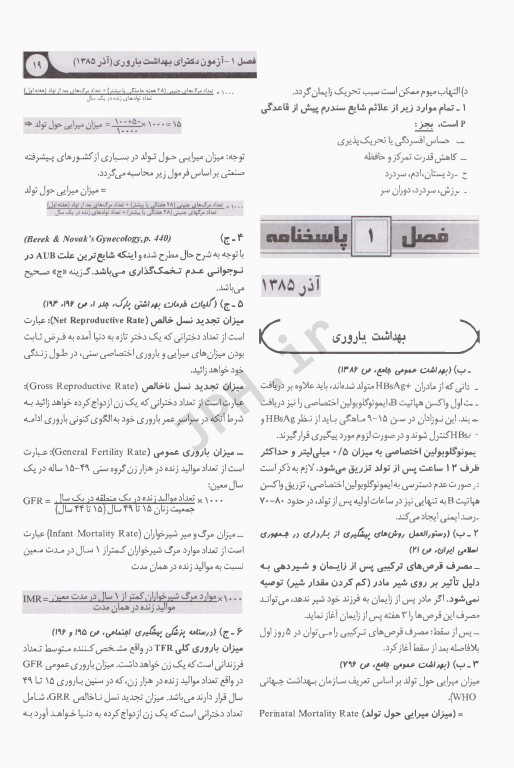 فصل ۱- آزمون دکترای بهداشت باروری (آذر ۱۳۸۵)
۱۹
د) التهاب میوم ممکن است سبب تحریک زایمان گردد.
۱ ـ تمام موارد زیر از علائم شایع سندرم پیش از قاعدگی
است، بجز:
حساس افسردگی یا تحریک‌پذیری
کاهش قدرت تمرکز و حافظه
درد پستان، ادم، سردرد
لرزش، سردرد، دوران سر
فصل ۱ پاسخنامه
آذر ۱۳۸۵
بهداشت باروری
ـ ب) (بهداشت عمومی جامع، ص ۱۳۸۶)
دانی که از مادران +HBsAg متولد شده‌اند، باید علاوه بر دریافت
ت اول واکسن هپاتیت B، ایمونوگلوبولین اختصاصی را نیز دریافت
ند. این نوزادان در سن ۱۵-۹ ماهگی باید از نظر HBsAg و
HBs کنترل شوند و در صورت لزوم مورد پیگیری قرار گیرند.
یمونوگلوبولین اختصاصی به میزان ۰/۵ میلی‌لیتر و حداکثر
ظرف ۱۲ ساعت پس از تولد تزریق می‌شود. لازم به ذکر است
در صورت عدم دسترسی به ایمونوگلوبولین اختصاصی، تزریق واکسن
هپاتیت B به تنهایی نیز در ساعات اولیه پس از تولد، در حدود ۸۰-۷۰
رصد ایمنی ایجاد می‌کند.
۲ ـ ب) (دستورالعمل روش‌های پیشگیری از بارداری در جمهوری
اسلامی ایران، ص ۲۱)
ـ مصرف قرص‌های ترکیبی پس از زایمان و شیردهی به
دلیل تأثیر بر روی شیر مادر (کم کردن مقدار شیر) توصیه
نمی‌شود. اگر مادر پس از زایمان به فرزند خود شیر ندهد، می‌تواند
مصرف این قرص‌ها را ۳ هفته پس از زایمان آغاز نماید.
ـ پس از سقط: مصرف قرص‌های ترکیبی را می‌توان در ۵ روز اول
بلافاصله بعد از سقط آغاز کرد.
۳ ـ ب) (بهداشت عمومی جامع، ص ۷۹۶)
میزان میرایی حول تولد بر اساس تعریف سازمان بهداشت جهانی
(WHO).
= (میزان میرایی حول تولد) Perinatal Mortality Rate
تعداد مرگ‌های جنینی (۲۸ هفته حاملگی یا بیشتر) + تعداد مرگ‌های بعد از تولد (هفته اول) ×۱۰۰۰
تعداد تولدهای زنده در یک سال
⇒ میزان میرایی حول تولد = ۱۰۰+۵۰ / ۱۰۰۰۰ ×۱۰۰۰ = ۱۵
توجه: میزان میرایی حول تولد در بسیاری از کشورهای پیشرفته
صنعتی بر اساس فرمول زیر محاسبه می‌گردد.
= میزان میرایی حول تولد
تعداد مرگ‌های جنینی (۲۸ هفتگی یا بیشتر) + تعداد مرگ‌های بعد از تولد (هفته اول) ×۱۰۰۰
تعداد مرگهای جنینی (۲۸ هفتگی یا بیشتر) + تعداد تولدهای زنده در یک سال
۴ ـ ج) (Berek & Novak's Gynecology, p. 440)
با توجه به شرح حال مطرح شده و اینکه شایع‌ترین علت AUB در
نوجوانی عدم تخمک‌گذاری می‌باشد، گزینه «ج» صحیح
می‌باشد.
۵ ـ ج) (کلیات خدمات بهداشتی پارک، جلد ۱، ص ۱۹۶، ۱۹۴)
میزان تجدید نسل خالص (Net Reproductive Rate): عبارت
است از تعداد دخترانی که یک دختر تازه به دنیا آمده به فرض ثابت
بودن میزان‌های میرایی و باروری اختصاصی سنی، در طول زندگی
خود خواهد زائید.
میزان تجدید نسل ناخالص (Gross Reproductive Rate):
عبارت است از تعداد دخترانی که یک زن ازدواج کرده خواهد زائید به
شرط آنکه در سراسر عمر باروری خود به الگوی کنونی باروری ادامه
ـ میزان باروری عمومی (General Fertility Rate): عبارت
است از تعداد موالید زنده در هزار زن گروه سنی ۴۹-۱۵ ساله در یک
سال معین:
GFR = تعداد موالید زنده در یک منطقه در یک سال / جمعیت زنان ۱۵ تا ۴۹ سال (۱۵ تا ۴۴ سال) × ۱۰۰۰
ـ میزان مرگ و میر شیرخواران (Infant Mortality Rate) عبارت
است از تعداد موارد مرگ شیرخواران کمتر از ۱ سال در مدت معین
نسبت به موالید زنده در همان مدت
IMR = موارد مرگ شیرخواران کمتر از ۱ سال در مدت معین / موالید زنده در همان مدت ×۱۰۰۰
۶ ـ ج) (درسنامه پزشکی پیشگیری اجتماعی، ص ۱۹۵ و ۱۹۶)
میزان باروری کلی TFR در واقع مشخص کننده متوسط تعداد
فرزندانی است که یک زن خواهد داشت. میزان باروری عمومی GFR
در واقع تعداد موالید زنده در هزار زن، که در سنین باروری ۱۵ تا ۴۹
سال قرار دارند می‌باشد. میزان تجدید نسل ناخالص GRR، شامل
تعداد دخترانی است که یک زن ازدواج کرده به دنیا خواهد آورد به